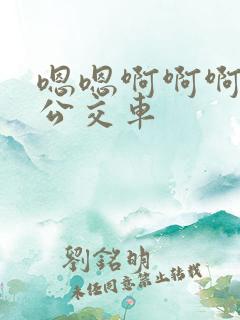 嗯嗯啊啊啊
公交车
劉銘明
未经同意禁止转载